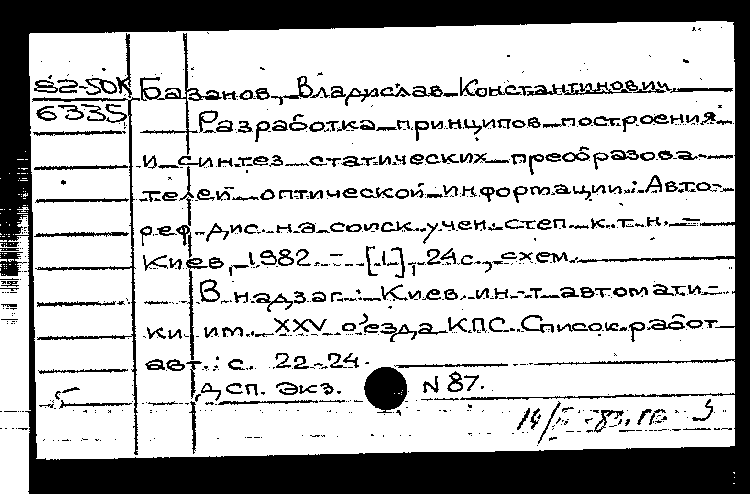 82-50К Базанов, Владислав Константинович
6335 Разработка принципов построения
и синтез статических преобразова-
телей оптической информации: Авто-
реф. дис. на соиск. учен. степ. к.т.н. -
Киев, 1982. - [1], 24с., схем.
В надзаг.: Киев. ин-т автомати-
ки им. XXV с'езда КПС. Список работ
авт.: с. 22-24.
ДСП. Экз. N 87.